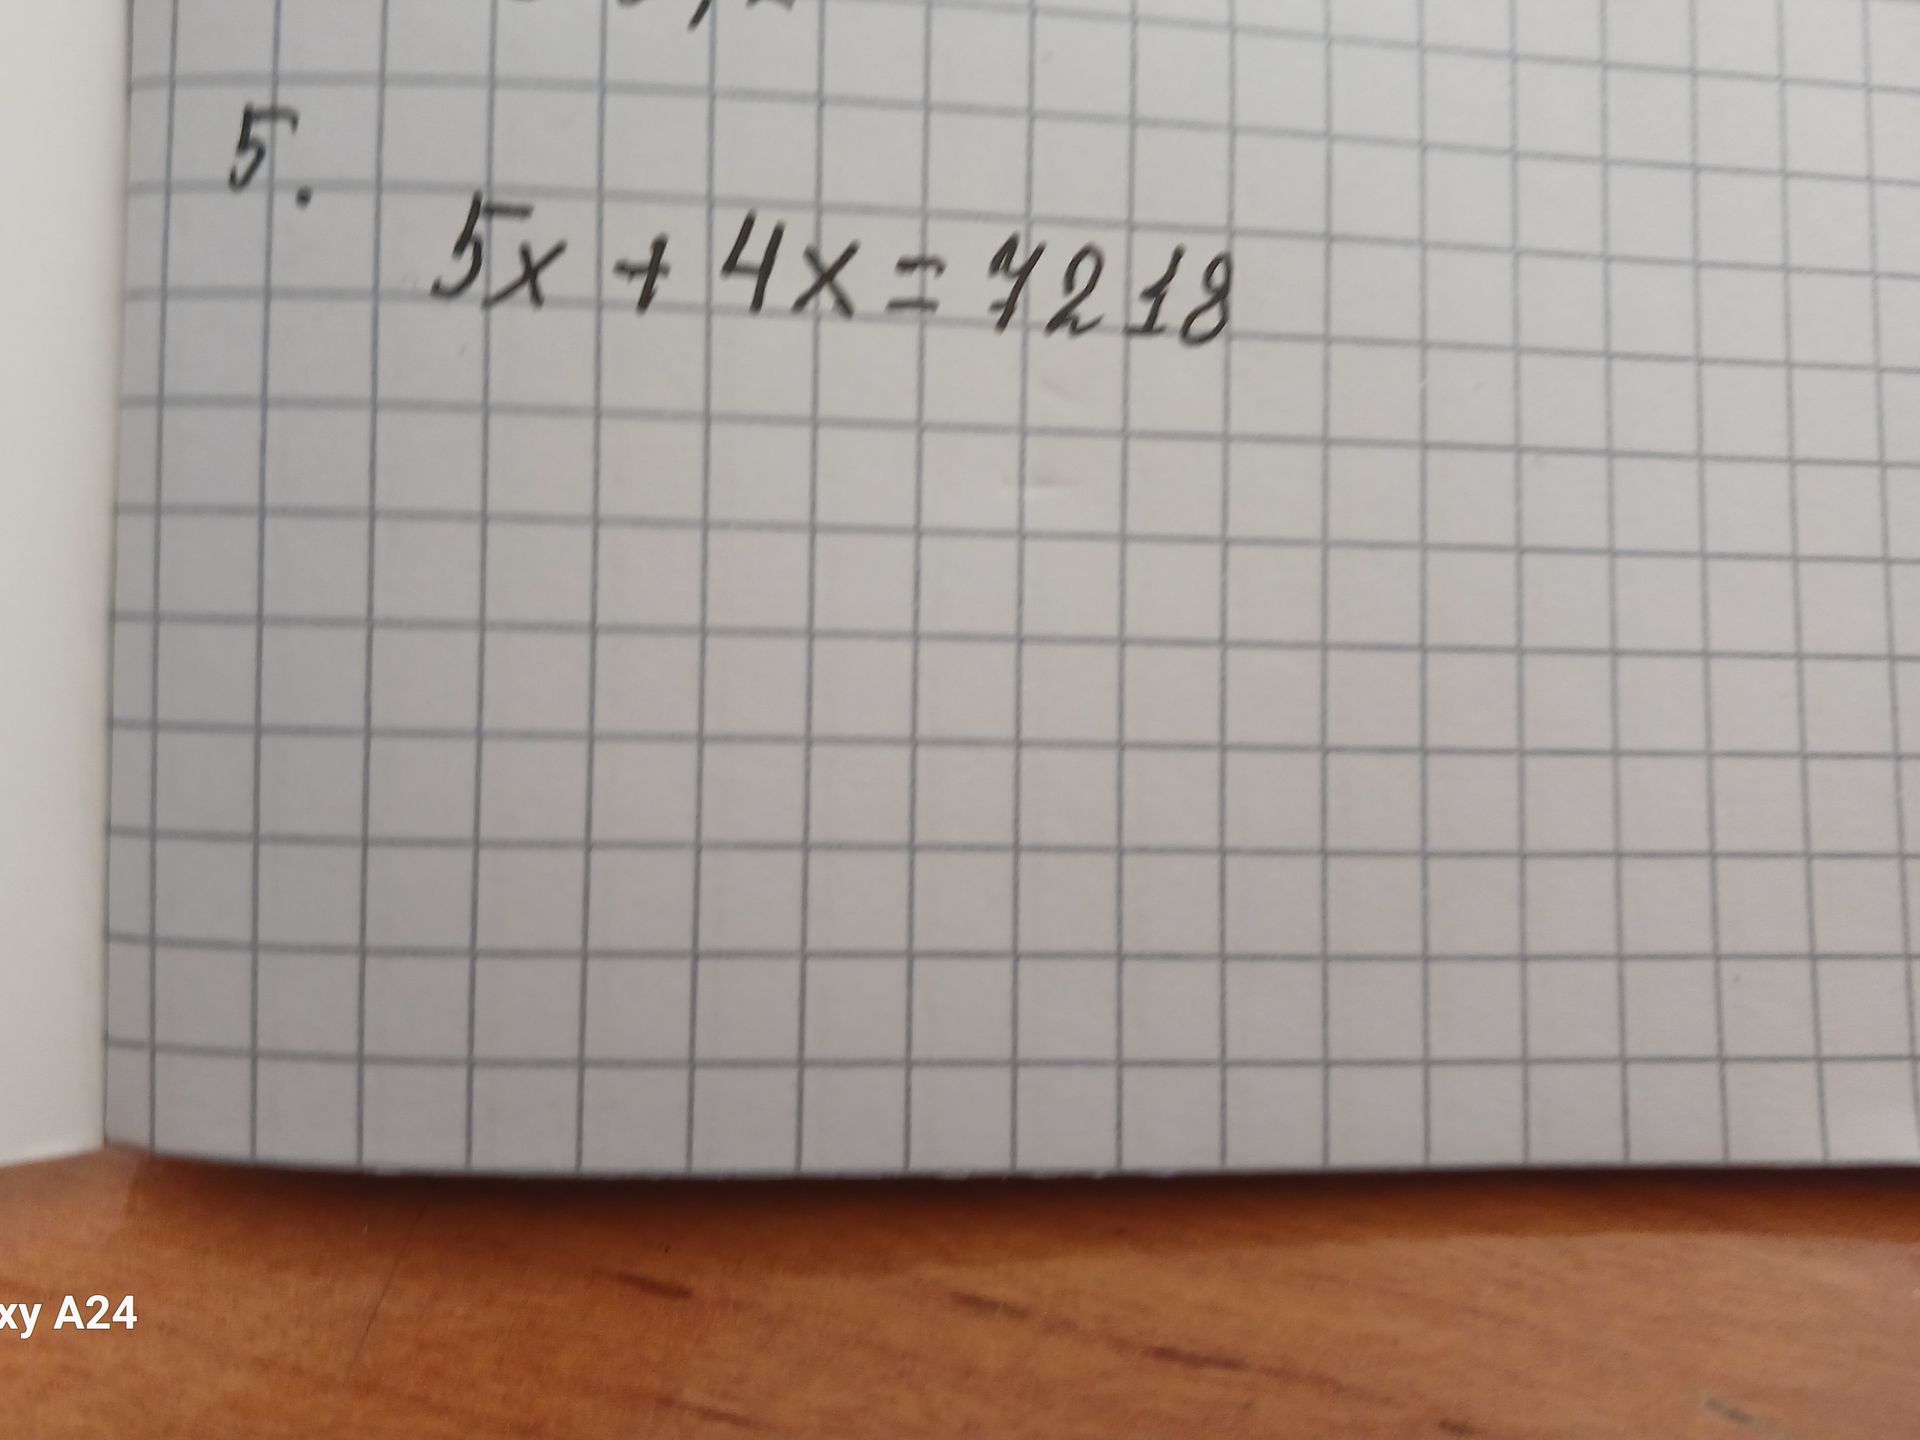 5.
5x + 4x = 7218
xy A24